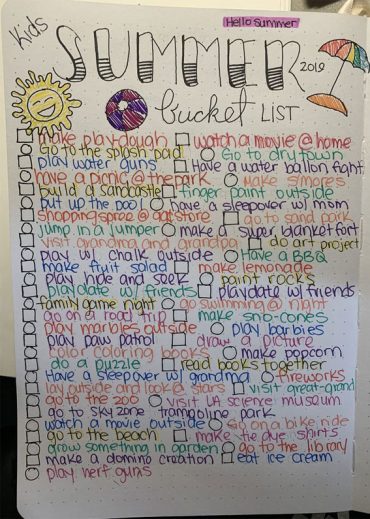 Hello Summer
Kids
SUMMER 2019
bucket LIST
make playdough watch a movie @ home
go to the splash pad Go to dry town
play water guns Have a water ballon fight
have a picnic @ the park make s'mores
build a sandcastle finger paint outside
put up the pool have a sleepover w/ mom
shopping spree @ go to sand park
jump in a jumper make a super blanket fort
visit grandma and grandpa do art project
play w/ chalk outside Have a BBQ
make fruit salad make lemonade
play hide and seek paint rocks
playdate w/ friends playdate w/ friends
family game night go swimming @ night
go on a road trip make sno-cones
play marbles outside play barbies
play paw patrol draw a picture
color coloring books make popcorn
do a puzzle read books together
Have a sleepover w/ grandma fireworks
lay outside and look @ stars visit great-grand
go to the zoo visit LA science museum
go to sky zone trampoline park
watch a movie outside Go on a bike ride
go to the beach make tie dye shirts
grow something in garden go to the library
make a domino creation eat ice cream
play nerf guns